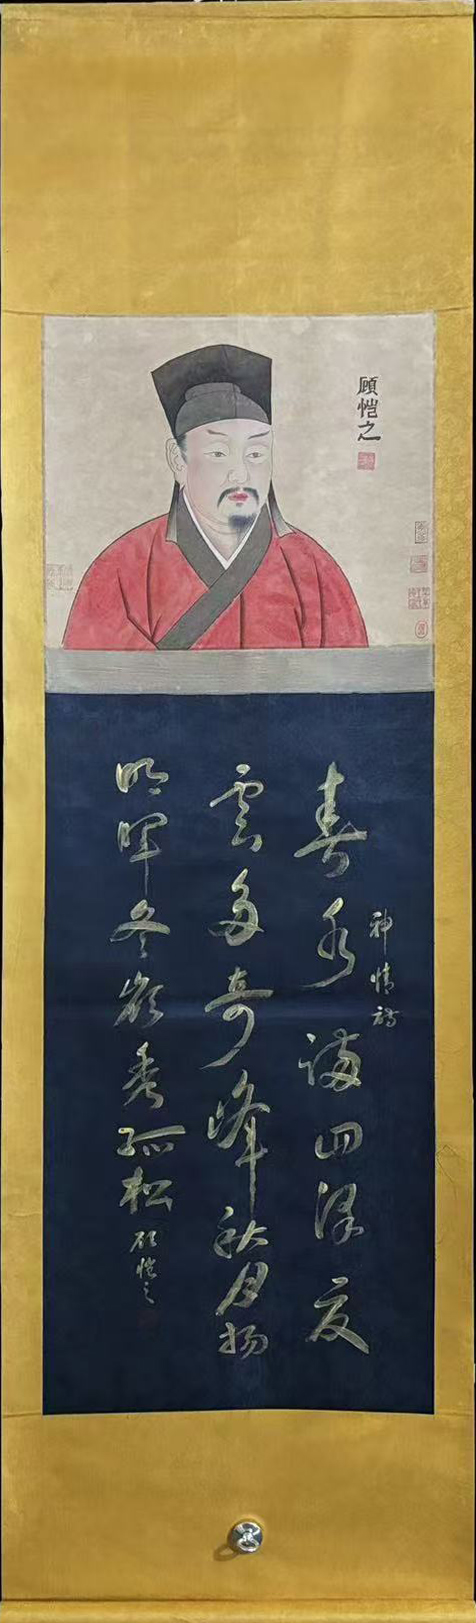 顧恺之
神情诗
春水满四泽夏
雲多奇峰秋月扬
明晖冬嶺秀孤松
顾恺之